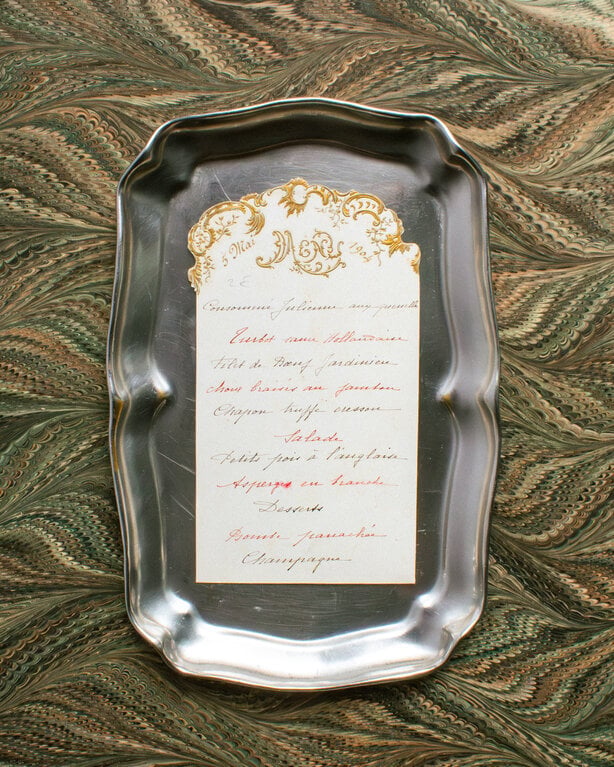 5 Mai MENU 1904
2 €
Consommé Julienne aux quenelle
Turbot sauce Hollandaise
Filet de Bœuf Jardinière
Choux braisés au jambon
Chapon truffé cresson
Salade
Petits pois à l'anglaise
Asperges en branche
Desserts
Bombe panachée
Champagne